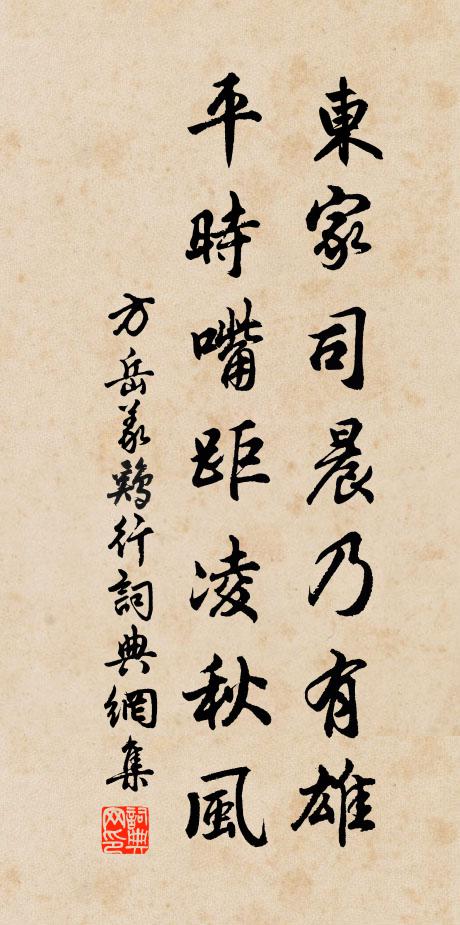 東家司晨乃有雄
平時嘴距凌秋風
方岳義鶏行詞典網集
詞典网印